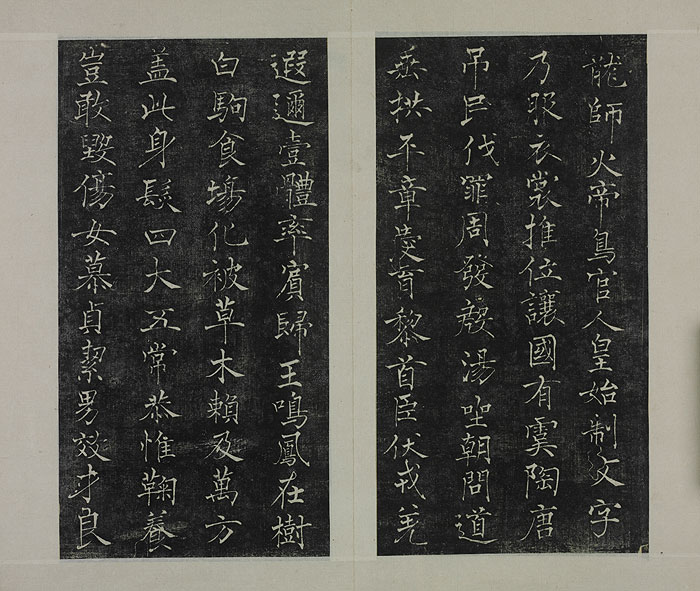 龍師火帝鳥官人皇始制文字
乃服衣裳推位讓國有虞陶唐
吊民伐罪周發殷湯坐朝問道
垂拱平章愛育黎首臣伏戎羌
遐邇壹體率賓歸王鳴鳳在樹
白駒食場化被草木賴及萬方
盖此身髮四大五常恭惟鞠養
豈敢毀傷女慕貞潔男效才良